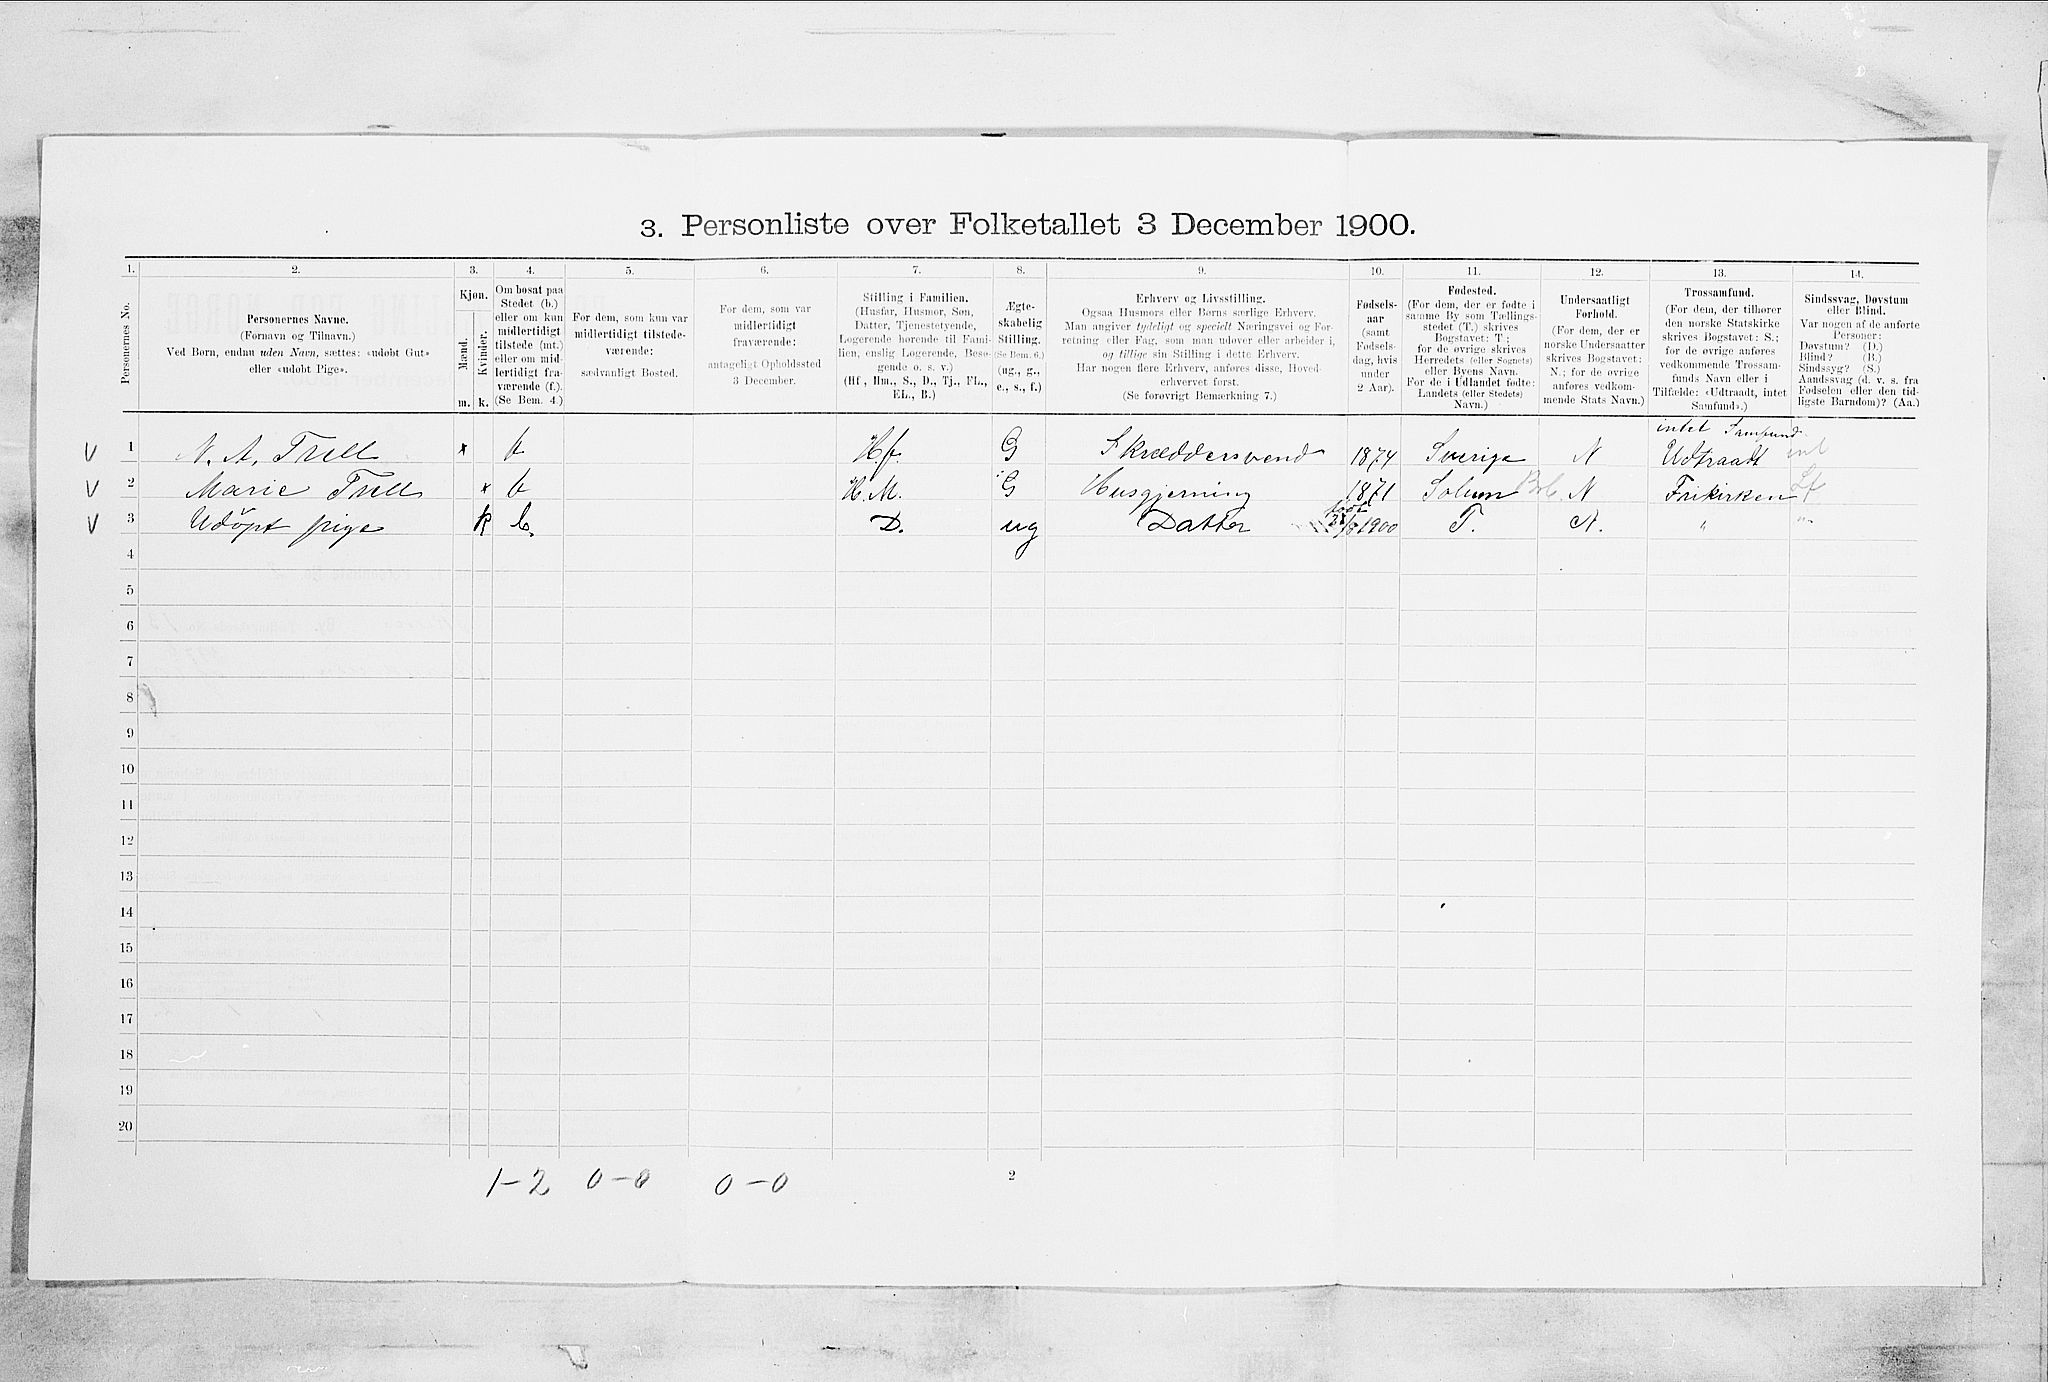 3. Personliste over Folketallet 3 December 1900.
1. 2. 3. 4. 5. 6. 7. 8. 9. 10. 11. 12. 13. 14.
Personernes No.
Personernes Navne.
(Fornavn og Tilnavn.)
Ved Børn, endnu uden Navn, sættes: «udøbt Gut»
eller «udøbt Pige».
Kjøn.
Mænd.
Kvinder.
m. k.
Om bosat paa
Stedet (b.)
eller om kun
midlertidigt
tilstede (mt.)
eller om mid-
lertidigt fra-
værende (f.)
(Se Bem. 4.)
For dem, som kun var
midlertidigt tilstede-
værende:
sædvanligt Bosted.
For dem, som var
midlertidigt
fraværende:
antageligt Opholdssted
3 December.
Stilling i Familien.
(Husfar, Husmor, Søn,
Datter, Tjenestetyende,
Logerende hørende til Fami-
lien, enslig Logerende, Besø-
gende o. s. v.)
(Hf., Hm., S., D., Tj., FL.,
EL., B.)
Ægte-
skabelig
Stilling.
(Se Bem. 6.)
(ug., g.,
e., s., f.)
Erhverv og Livsstilling.
Ogsaa Husmors eller Børns særlige Erhverv.
Man angiver tydeligt og specielt Næringsvei og For-
retning eller Fag, som man udøver eller arbeider i,
og tillige sin Stilling i dette Erhverv.
Har nogen flere Erhverv, anføres disse, Hoved-
erhvervet først.
(Se forøvrigt Bemærkning 7.)
Fødsels-
aar
(samt
Fødsels-
dag, hvis
under
2 Aar).
Fødested.
(For dem, der er fødte i
samme By som Tællings-
stedet (T.) skrives
Bogstavet: T;
for de øvrige skrives
Herredets (eller Sognets)
eller Byens Navn.
For de i Udlandet fødte:
Landets (eller Stedets)
Navn.)
Undersaatligt
Forhold.
(For dem, der er
norske Undersaatter
skrives Bogstavet:
N.; for de øvrige
anføres vedkom-
mende Stats Navn.)
Trossamfund.
(For dem, der tilhører
den norske Statskirke
skrives Bogstavet: S.;
for de øvrige anføres
vedkommende Trossam-
funds Navn eller i
Tilfælde: «Udtraadt, intet
Samfund».)
Sindssvag, Døvstum
eller Blind.
Var nogen af de anførte
Personer:
Døvstum? (D.)
Blind? (B.)
Sindssyg? (S.)
Aandssvag (d. v. s. fra
Fødselen eller den tid-
ligste Barndom)? (Aa.)
intet Samfund
V 1 N. A. Trell x b Hf. G Skræddersvend 1874 Sverige N Udtraadt
V 2 Marie Trell x b H.M. G Husgjerning 1871 Solum N Frikirken Lf
V 3 Udöpt pige k b. D. ug Datter 1900 T. N. " "
4
5
6
7
8
9
10
11
12
13
14
15
16
17
18
19
20
1-2 0-0 0-0
2